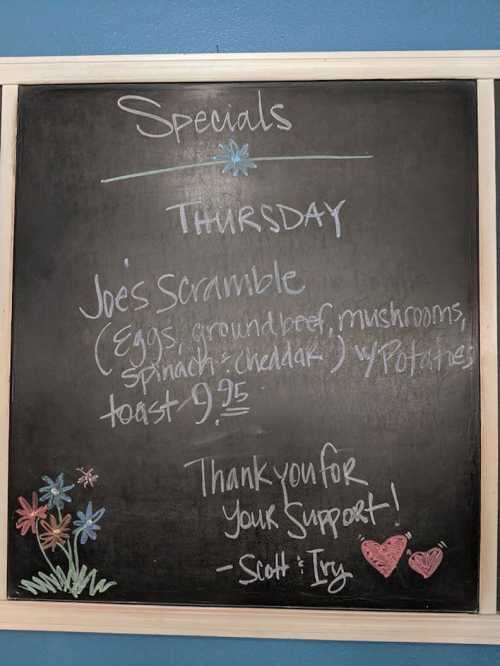 Specials
THURSDAY
Joe's Scramble
(Eggs, ground beef, mushrooms,
spinach & cheddar) w/ Potatoes
toast 9.95
Thank you for
your Support!
- Scott & Ivy